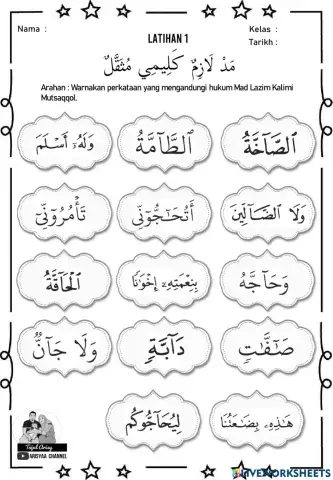 Nama :
Kelas :
LATIHAN 1
Tarikh :
مَدْ لَازِمْ كَلِيمِي مُثَقَّلْ
Arahan : Warnakan perkataan yang mengandungi hukum Mad Lazim Kalimi
Mutsaqqol.
ٱلصَّآخَّةُ ٱلطَّآمَّةُ وَلَهُۥٓ أَسْلَمَ
وَلَا ٱلضَّآلِّينَ أَتُحَٰٓجُّوٓنِّي تَأْمُرُوٓنِّيٓ
وَحَآجَّهُ بِنِعْمَتِهِۦٓ إِخْوَٰنًا ٱلْحَآقَّةُ
صَٰٓفَّٰتٍ دَآبَّةٍ وَلَا جَآنٌّ
هَٰذِهِۦ بِضَٰعَتُنَا لِيُحَآجُّوكُم
Tajul Ariny
ARISYAA CHANNEL
LIVEWORKSHEETS